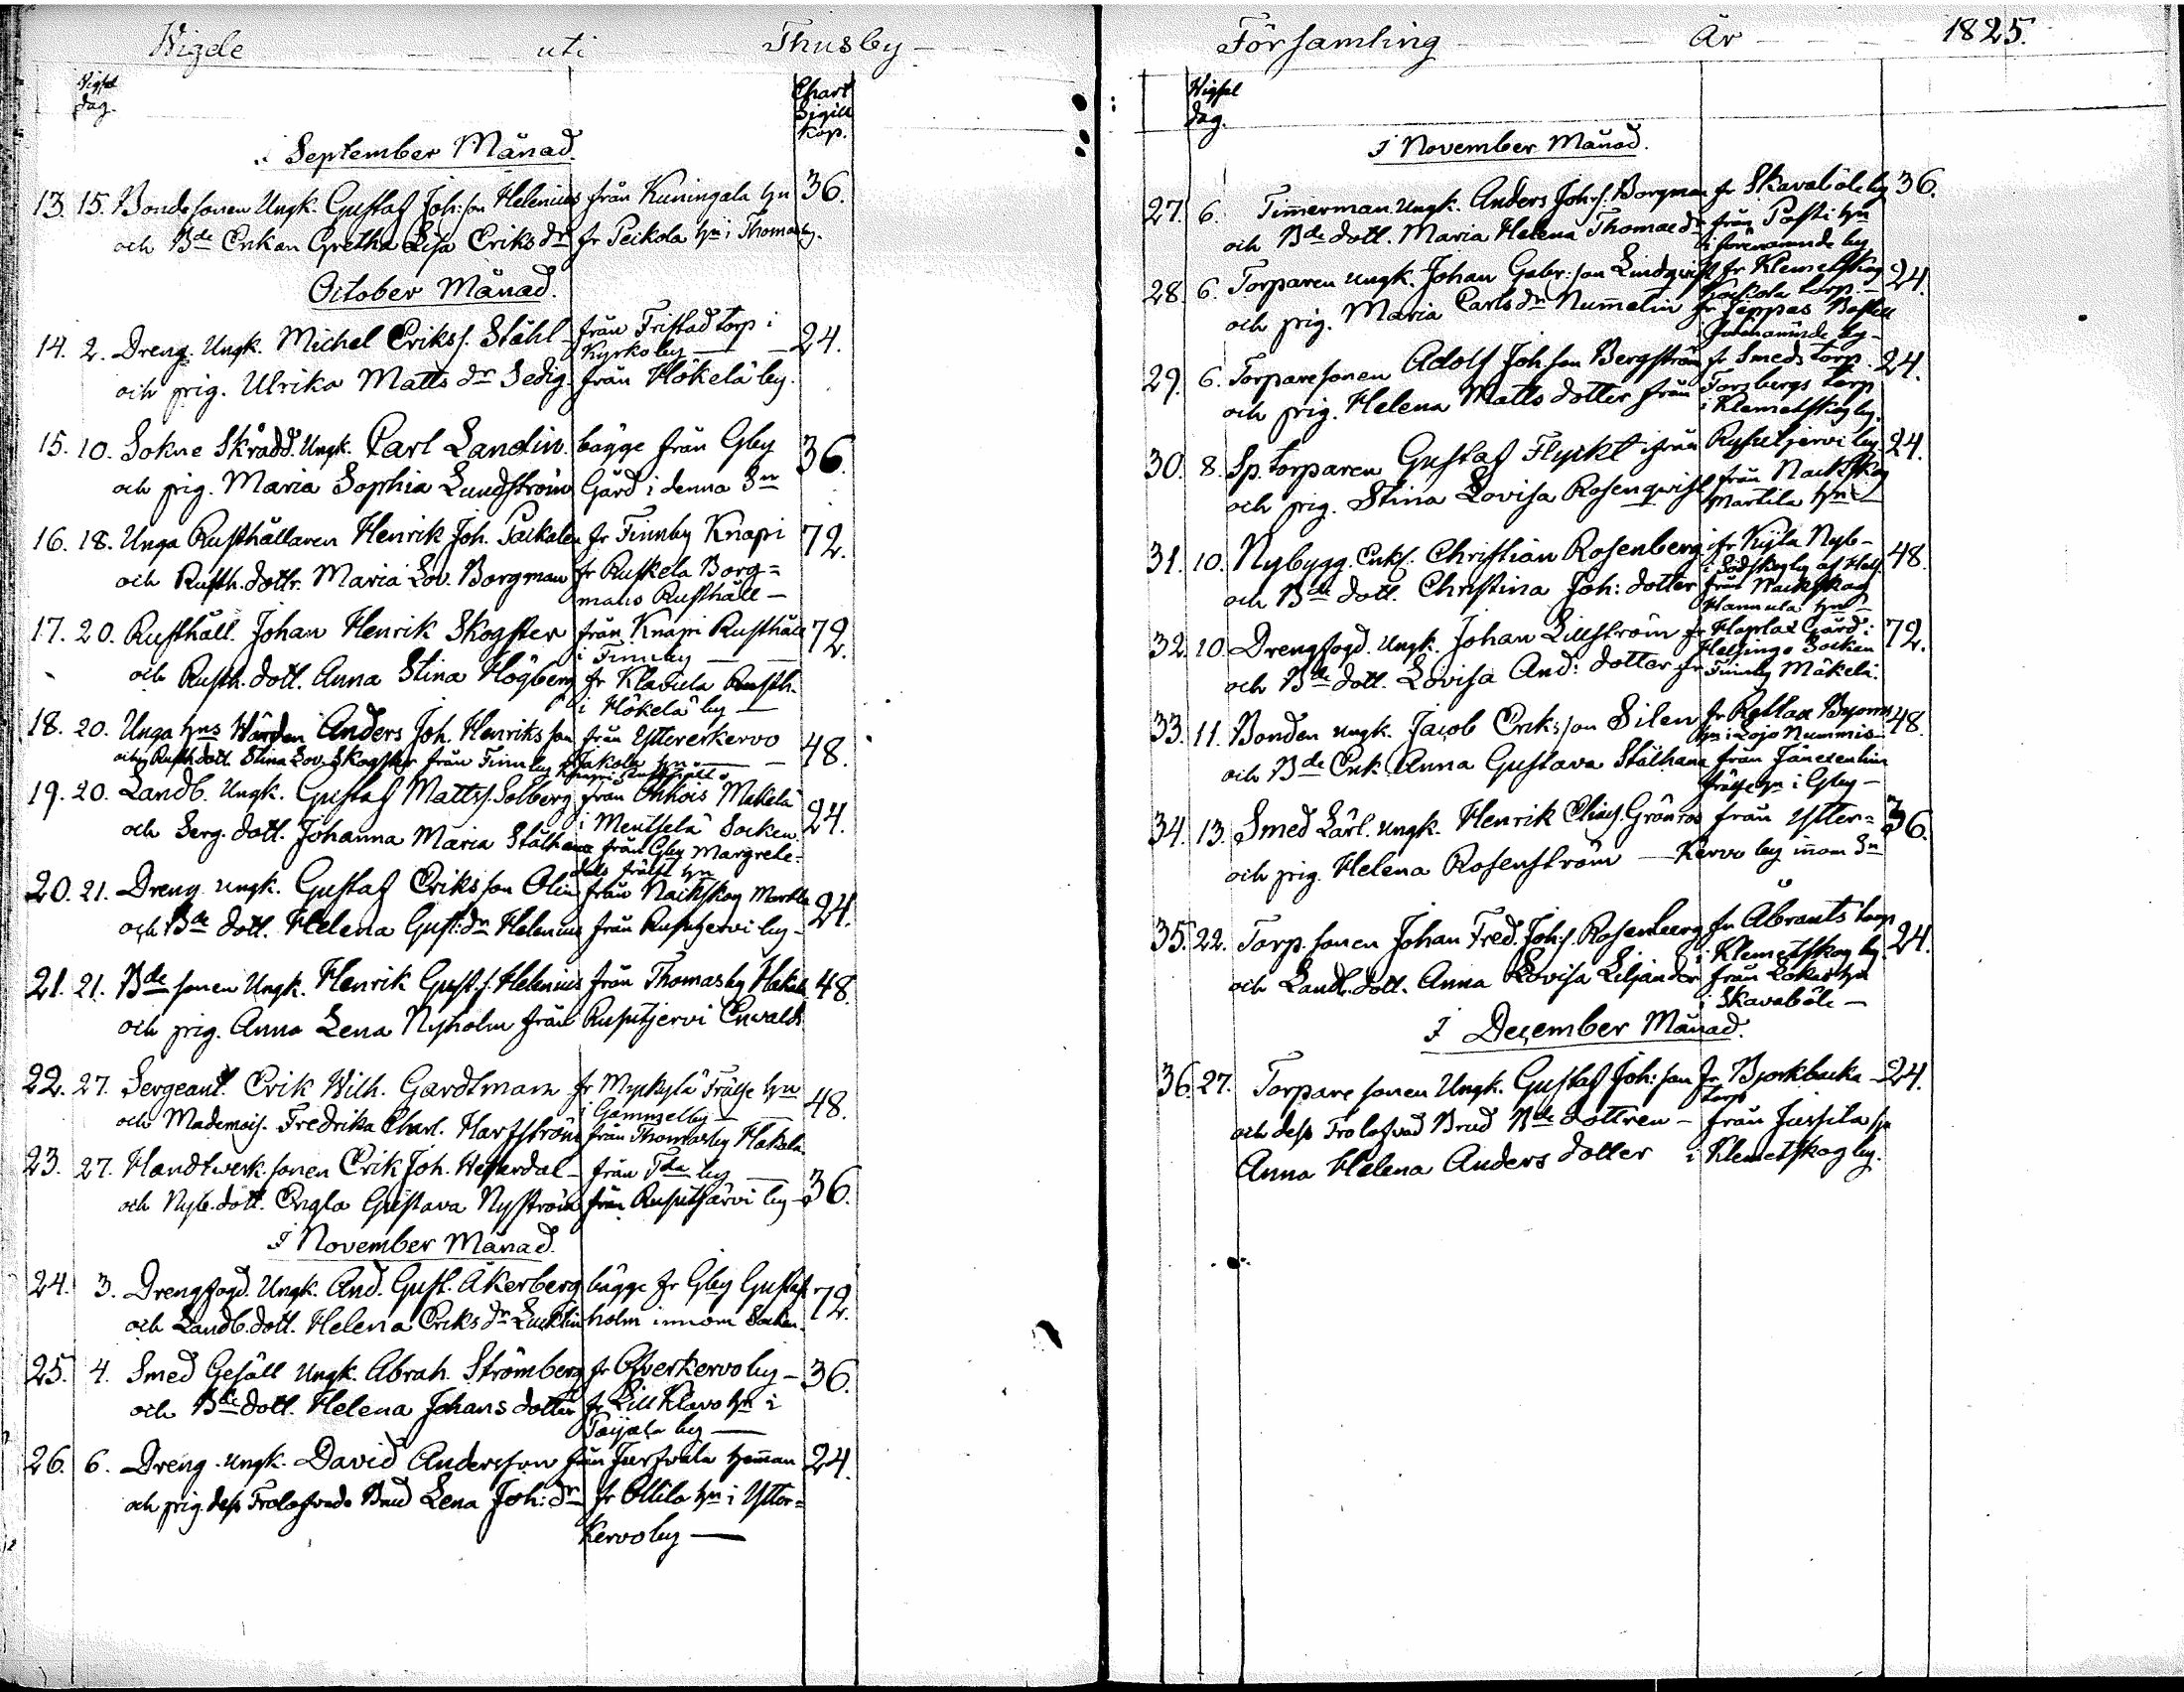 Wigde uti Thusby
Wigsel dag. Chart Sigill Kop.
i September Månad.
13. 15. Bondesonen Ungk. Gustaf Joh:son Helenius från Kuningala hn 36.
och Bde Enkan Gretha Lisa Eriks dr fr Peikola hn i Thomasby.
October Månad.
14. 2. Dreng. Ungk. Michel Erikss. Ståhl från Fristad torp i
Kyrkoby 24.
och pig. Ulrika Matts dr Sedig. från Hökelä by.
15. 10. Sokne Skrädd. Ungk. Carl Landin. bägge från Gby 36.
och pig. Maria Sophia Lundström Gård i denna Sn
16. 18. Unga Rusthållaren Henrik Joh. Paikalen fr Finnby Knapi 72.
och Rusth. dottr. Maria Lov. Borgman fr Ruskela Borg=
mans Rusthåll
17. 20. Rusthåll. Johan Henrik Skogster från Knapi Rusthåll 72.
i Finnby
och Rusth. dott. Anna Stina Högberg fr Klavula Rusth.
i Hökelä by
18. 20. Unga hns Wärden Anders Joh. Henriksson från Yttererkervo
Jakola hn 48.
och Rusth dott. Stina Lov. Skogster från Finnby Knapi Rusthåll
19. 20. Landb. Ungk. Gustaf Mattss. Solberg från Ohkois Makelä
i Mentselä Socken 24.
och Serg. dott. Johanna Maria Stålhane från Gby Margrete=
dals frälse hn
20. 21. Dreng. ungk. Gustaf Eriksson Olin från Nackskog Martila 24.
och Bde dott. Helena Gust:dr Helenius från Rusutjervi by
21. 21. Bde sonen Ungk. Henrik Gust.s. Helenius från Thomasby Hakala 48.
och pig. Anna Lena Nyholm från Rusutjervi Enwalds
22. 27. Sergeant. Erik Wilh. Gardtman fr Myrkylä Frälse hn
i Gammelby 48.
och Mademois. Fredrika Charl. Hartzström från Thomasby Hakala
23. 27. Handtwerk.sonen Erik Joh. Westerdal från Tda by 36.
och Nyb. dott. Engla Gustava Nyström från Rusutjärvi by
I November Månad.
24. 3. Drengfogd. Ungk. And. Gust. Åkerberg bägge fr Gby Gustaf 72.
och Landb. dott. Helena Eriks dr Lucklin holm innom Socken.
25. 4. Smed Gesäll ungk. Abrah. Strömberg fr Ofverkervo by 36.
och Bde dott. Helena Johans dotter fr Lill Klavo hn i
Paijala by
26. 6. Dreng. ungk. David Andersson från Jursvala hemman 24.
och pig. dess Trolofvade Brud Lena Joh: dr fr Ollila hn i Ytter=
Kervo by
Församling År 1825.
Wigsel dag.
I November Månad.
27. 6. Timmerman. ungk. Anders Joh.s. Borgman fr Skavaböle by 36.
och Bde dott. Maria Helena Thomae dr från Pasti hn
i förenämnde by
28. 6. Torparen ungk. Johan Gabr:son Lindqvist fr Klemetskog 24.
torp.
och pig. Maria Carls dr Nummelin fr Jeppas Bostell
i förenämnde by
29. 6. Torparesonen Adolf Joh.son Bergström fr Smeds torp 24.
och pig. Helena Matts dotter från Forsbergs torp
i Klemetskog by.
30. 8. Sp. torparen Gustaf Flyckt ifrån Rusutjervi by 24.
och pig. Stina Lovisa Rosenqvist från Nackskog
Martila hn
31. 10. Nybygg. Enkl. Christian Rosenberg ifr Kyla Nyb- 48.
i Sodskog by af Hels.
och Bde dott. Christina Joh: dotter från Nackskog
Hannula hn
32. 10. Drengfogd. Ungk. Johan Lillström fr Hoplax Gård i 72.
Helsinge Socken
och Bde dott. Lovisa And: dotter fr Finnby Mäkelä.
33. 11. Bonden ungk. Jacob Eriksson Silen fr Retlax Byoms 48.
hn i Lojo Nummis
och Bde Enk. Anna Gustava Stålhane från Jänexenlinn
frälse hn i Gby
34. 13. Smed Lärl. ungk. Henrik Elias. Grönros från Ytter= 36.
och pig. Helena Rosenström Kervo by innom Sn
35. 22. Torp.sonen Johan Fred. Joh:s. Rosenberg fr Åbrants torp 24.
i Klemetskog by
och Landb. dott. Anna Lovisa Liljander från Lokes hn
i Skavaböle
I December Månad.
36. 27. Torpare sonen Ungk. Gustaf Joh:son fr Bjorkbacka 24.
torp
och dess Trolofvad Brud Bde dottren från Jussila
Anna Helena Anders dotter i Klemetskog by.